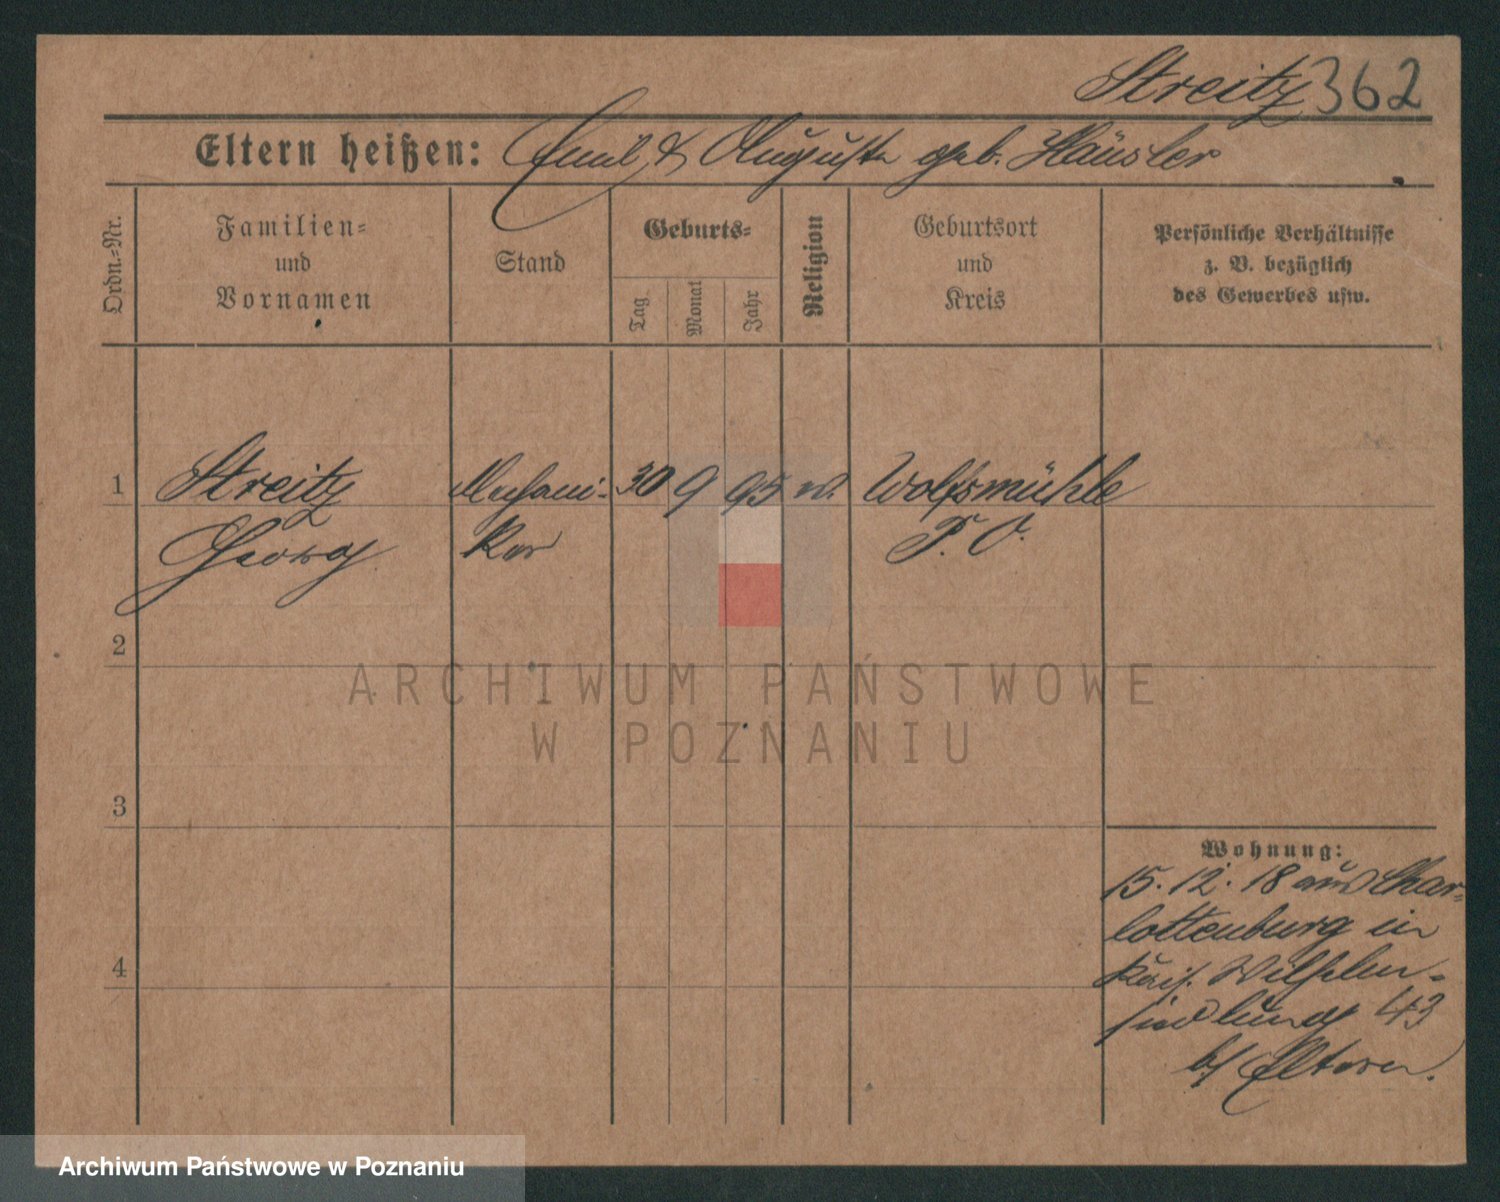 Streitz 362
Eltern heißen: Emil & Auguste geb. Häusler
Ordn.-Nr.
Familien-
und
Vornamen
Stand
Geburts-
Tag
Monat
Jahr
Religion
Geburtsort
und
Kreis
Persönliche Verhältnisse
z. B. bezüglich
des Gewerbes usw.
1 Streitz Mechani- 30 9 95 Wolfsmühle
Georg ker P. O.
2
ARCHIWUM PAŃSTWOWE
W POZNANIU
3
Wohnung:
15. 12. 18 aus Char-
lottenburg in
4
Kais. Wilhelm-
siedlung 43
b/ Eltern.
Archiwum Państwowe w Poznaniu